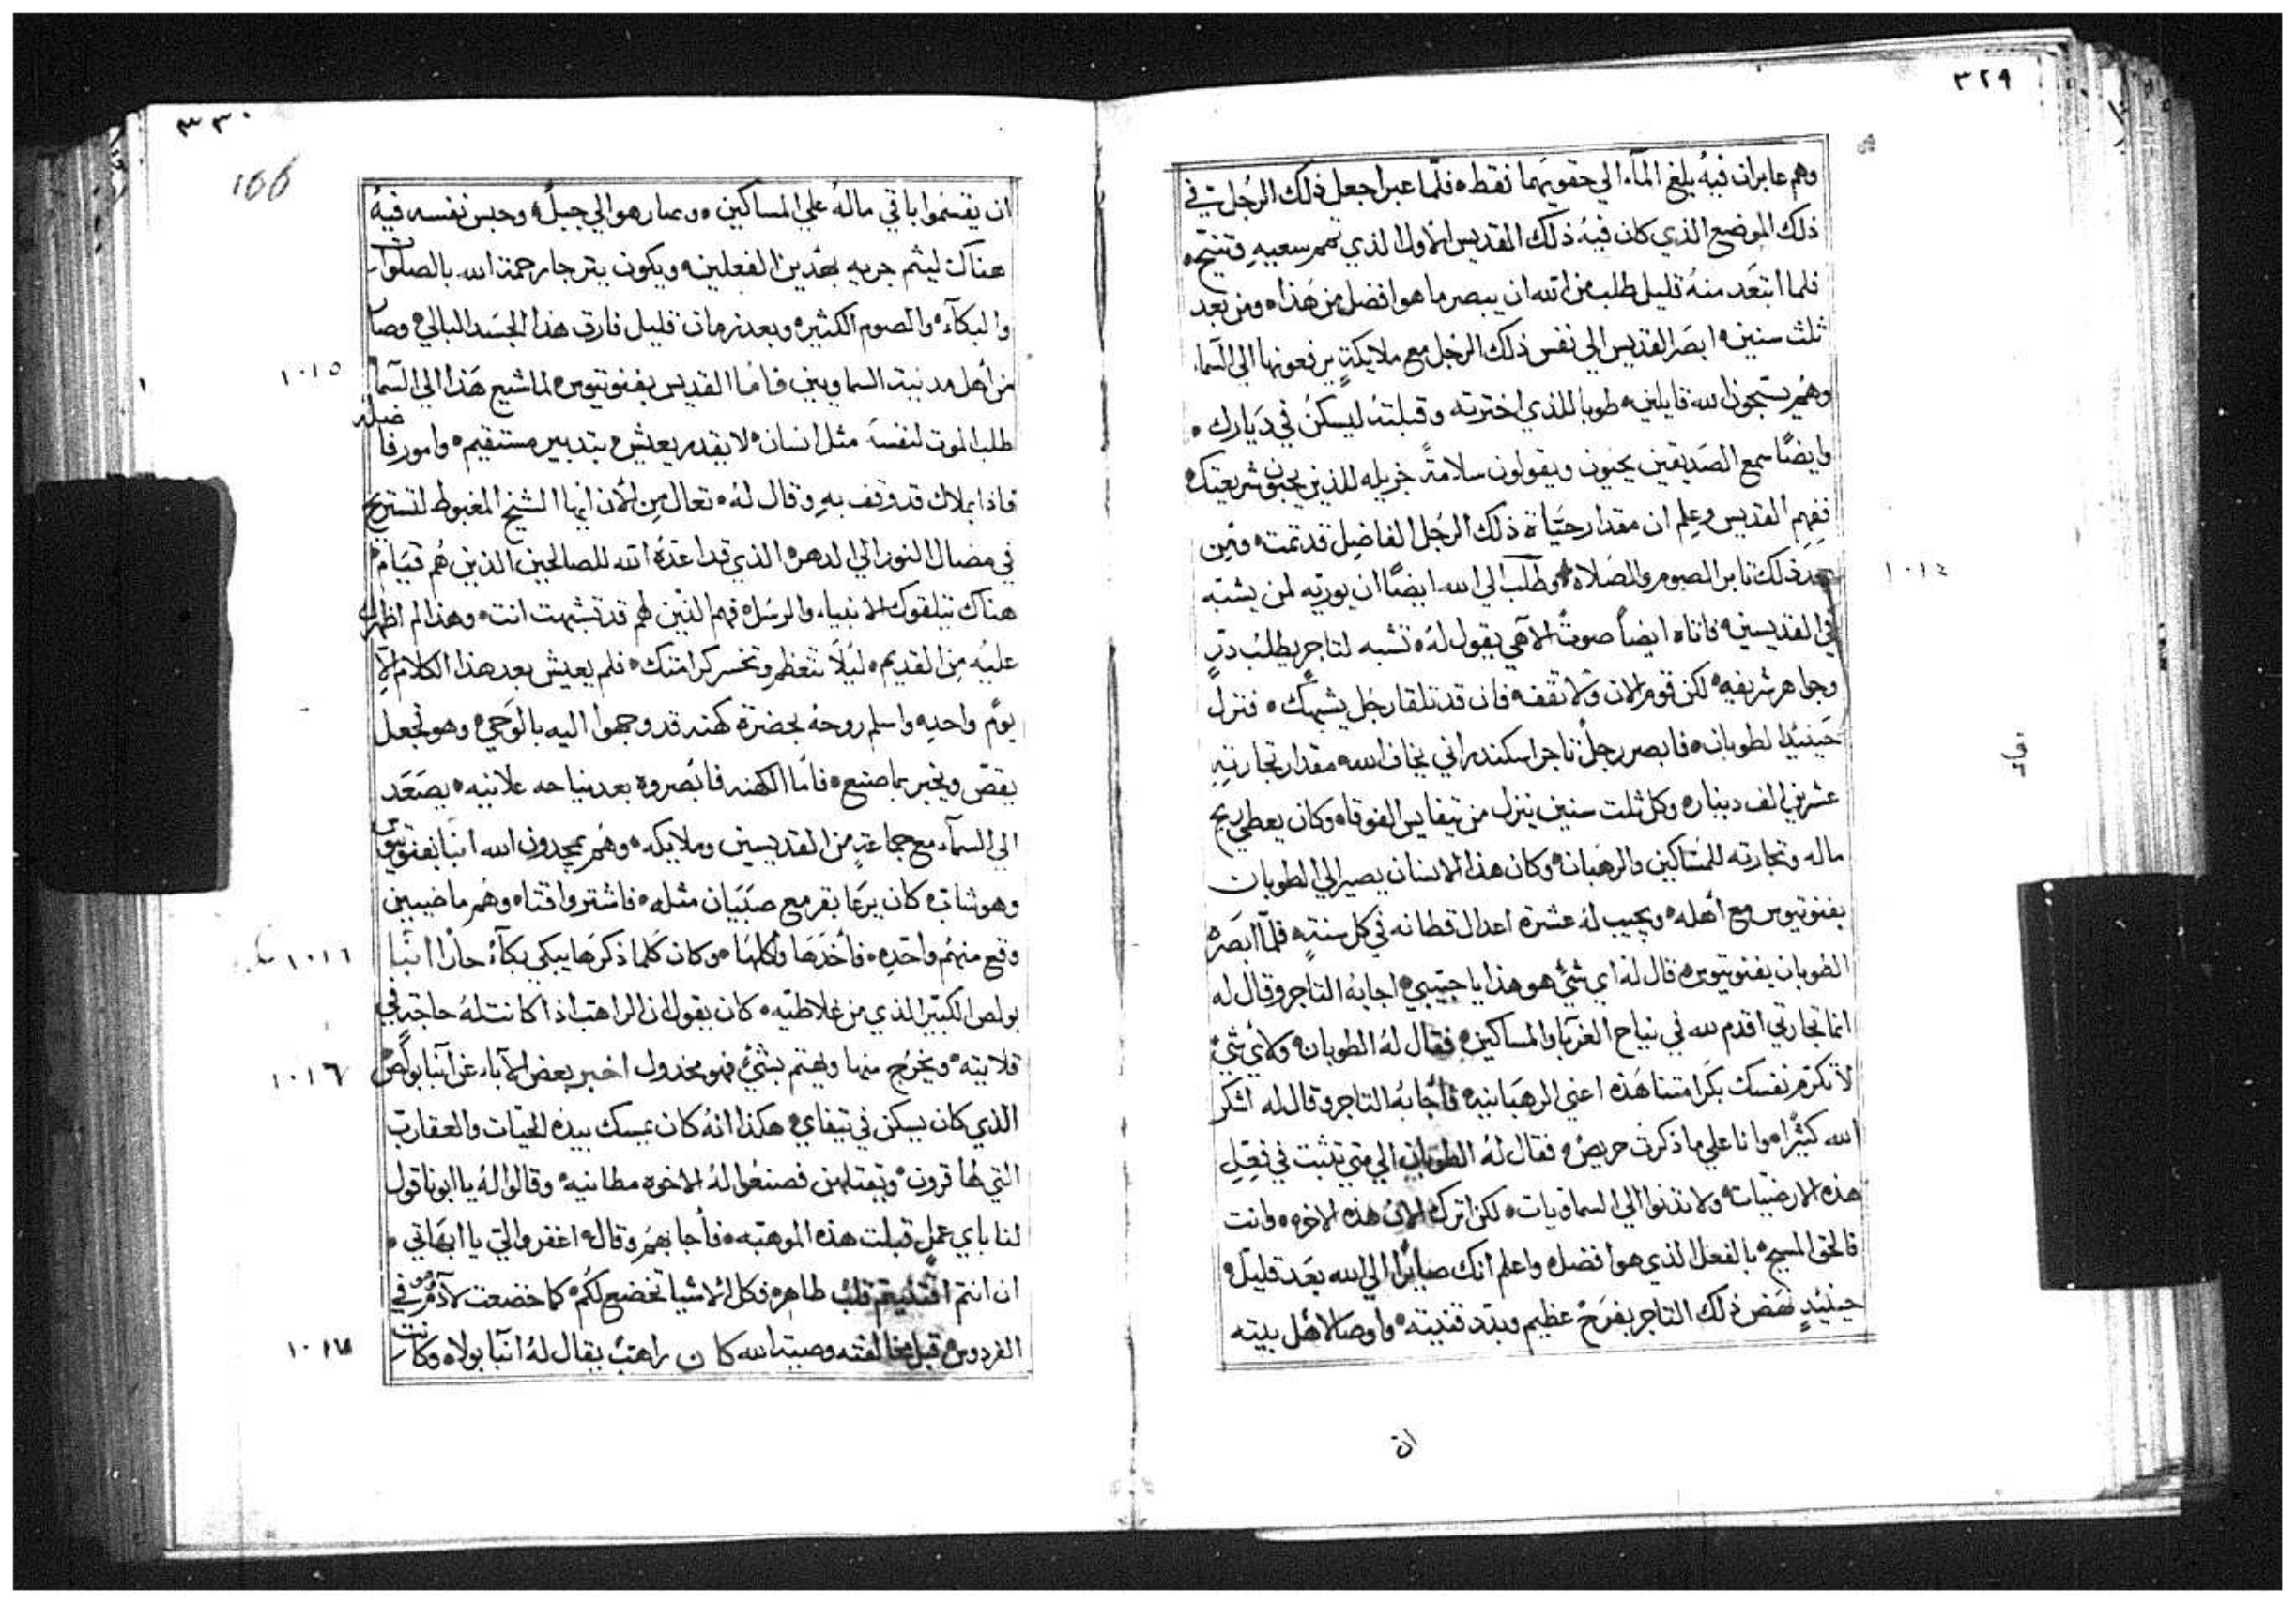 ٣٢٩
وهم عابران فيه بلغ المآء الي حقويهما فقط ۰ فلما عبرا جعل ذلك الرجل في
ذلك الموضع الذي كان فيه ذلك القديس الاول الذي تمم سعيه وتنيح ۰
فلما ابتعد منه قليل طلب من الله ان يبصر ما هو افضل من هذا ۰ ومن بعد
ثلث سنين ۰ ابصر القديس الي نفس ذلك الرجل مع ملايكة يرفعونها الي السما
وهم يسبحون لله قايلين ۰ طوبا للذي اخترته وقبلته ليسكن في ديارك ۰
وايضًا سمع الصديقين يجيبون ويقولون سلامة جزيله للذين يحبون شريعتك
ففهم القديس وعلم ان مقدار حياة ذلك الرجل الفاضل قد تمت ۰ فمن
١٠١٤
بعد ذلك ثابر الصوم والصلاه وطلب الي الله ايضًا ان يوريه لمن يشبه
في القديسين ۰ فاتاه ايضاً صوت الآهي يقول له ۰ تشبه لتاجر يطلب در
وجواهر شريفه ۰ لكن قوم الان ولا تقفه فان قد تلقا رجل يشبهك ۰ فنزل
حينيد الطوبان ۰ فابصر رجل تاجر اسكندراني يخاف الله ۰ مقدار تجارته
عشرين الف دينار ۰ وكل ثلت سنين ينزل من تيفايس الفوقاه وكان يعطي ربح
ماله وتجارته للمساكين والرهبان ۰ وكان هذا الانسان يصير الي الطوبان
بفنوتيوس مع أهله ۰ ويجيب له عشرة اعدال قطانه في كل سنة ۰ فلما ابصره
الطوبان بفنوتيوس قال له اي شي هو هذا يا حبيبي ۰ اجابه التاجر وقال له
انما تجارتي اقدم لله في نياح الغربا والمساكين ۰ فقال له الطوبان ۰ ولأي شي
لا تكرم نفسك بكرامتنا هذه اعني الرهبانيه فأجابه التاجر وقال له اشكر
الله كثيرا ۰ وانا علي ما ذكرت حريص ۰ فقال له الطوبان الي متي تثبت في فعل
هذه الارضيات ۰ ولا تدنوا الي السماويات ۰ لكن اترك الان هذه الاخره ۰ وانت
فالحق المسيح ۰ بالفعل الذي هو افضل ۰ واعلم انك صايرا الي الله بعد قليل ۰
حينيد نهض ذلك التاجر بفرح عظيم وبدد قنيته ۰ واوصا لاهل بيته
ان
٣٣٠
166
ان يقسموا باقي ماله علي المساكين ۰ وصار هو الي جبل ۰ وحبس نفسه فيه
هناك ليتم جريه بهدين الفعلين ۰ ويكون يترجا رحمة الله بالصلوات
والبكآء ۰ والصوم الكثير ۰ وبعد زمان قليل فارق هذا الجسد البالي ۰ وصا
١٠١٥
من أهل مدينة السماويين فاما القديس بفنوتيوس لما شيع هذا الي السما
طلب الموت لنفسه مثل انسان ۰ لا يقدر يعيش ۰ بتدبير مستقيم ۰ وامور فاضله
فاذا بملاك قد وقف به وقال له ۰ تعال من الان ايها الشيخ المغبوط لتستريح
في مضال النور الي الدهر ۰ الذي قد اعده الله للصالحين الذين هم قيام
هناك تيلقوك الانبياء والرسل ۰ فهم الذين لهم قد تشبهت انت ۰ وهذا لم اظهره
عليه من القديم ۰ ليلا تتعظم وتخسر كرامتك ۰ فلم يعيش بعد هذا الكلام إلا
يوم واحد ۰ واسلم روحه بحضرة كهنه قد وجهوا اليه بالوحي ۰ وهو فجعل
يقص ويخبر بما صنع ۰ فاما الكهنه فابصروه بعد نياحه علانيه ۰ يصعد
الي السمآء مع جماعة من القديسين وملايكه ۰ وهم يمجدون الله انبا بفنوتيوس
وهو شاب ۰ كان يرعا بقر مع صبيان مثله ۰ فاشتروا قتا ۰ وهم ماضيين
١٠١٦
وقع منهم واحده ۰ فأخدها وأكلها ۰ وكان كلما ذكرها يبكي بكآء حارًا انبا
بولص الكبير الذي من غلاطيه ۰ كان يقول ان الراهب اذا كانت له حاجة في
١٠١٦
قلايته ۰ ويخرج منها ويهتم بشي ۰ فهو مخدول اخبر بعض الآباء عن انبا بولص
الذي كان يسكن في تيفاي ۰ هكذا انه كان يمسك بيده الحيات والعقارب
التي لها قرون ۰ ويقتلهن فصنعوا له الاخوه مطانيه ۰ وقالوا له يا ابونا قول
لنا باي عمل قبلت هذه الموهبه ۰ فأجابهم وقال ۰ اغفروا لي يا ابهاتي ۰
ان انتم اقتنيتم قلب طاهر ۰ فكل الاشيا تخضع لكم ۰ كما خضعت لآدم وهو في
الفردوس ۰ قبل مخالفته وصية الله كان راهب يقال له انبا بولا ۰ وكانت